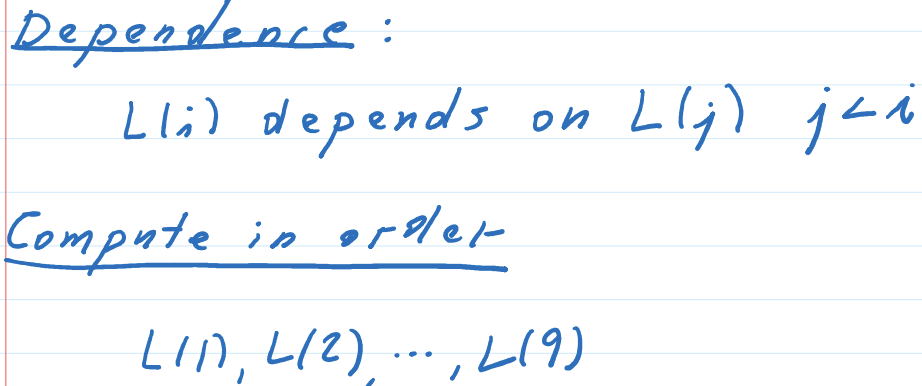 Dependence:
L(i) depends on L(j) j<i
Compute in order
L(1), L(2), ..., L(9)